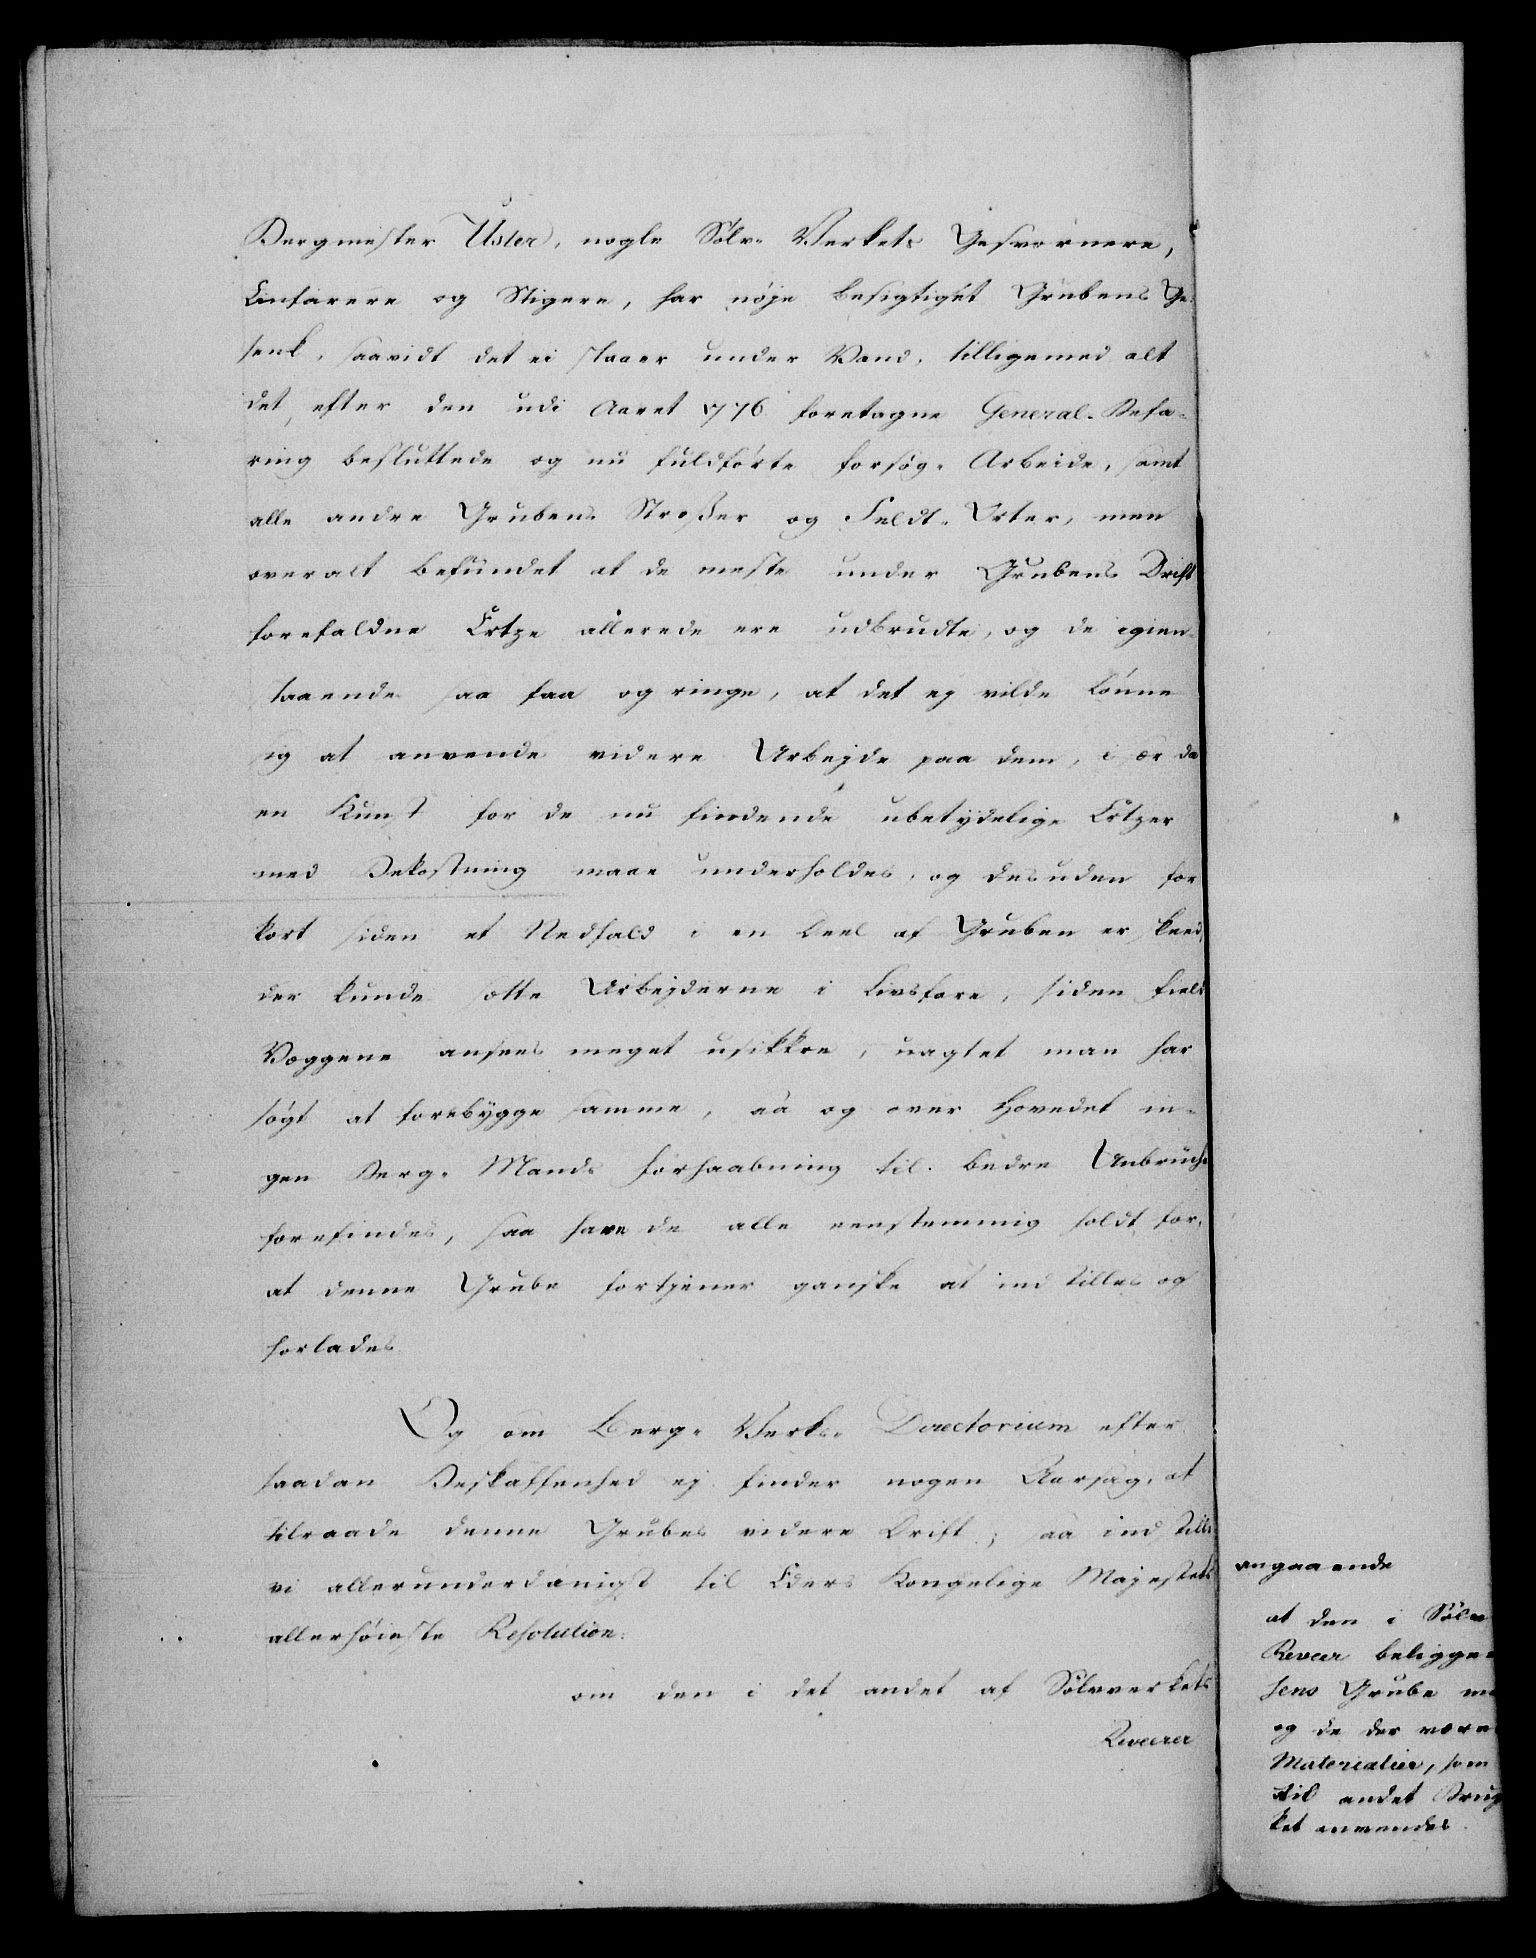 Bergmester Uster, nogle Sølv-Verkets Gesvornere,
Einfarere og Stigere, har nøje besigtiget Grubens Ge-
senk, saavidt det ei staaer under Vand, tilligemed alt
det, efter den udi Aaret 1776 foretagne General-Befa-
ring besluttede og nu fuldførte forsøg-Arbeide, samt
alle andre Grubens Stroßer og Feldt-Orter, men
overalt befundet at de meste under Grubens Drift
forefaldne Ertze allerede ere udbrudte, og de igien-
staaende saa faa og ringe, at det ej vilde lønne
sig at anvende videre Arbejde paa dem, i sær da
en Kunst for de nu findende ubetydelige Ertzer
med Bekostning maae underholdes, og desuden for
kort siden et Nedfald i en Deel af Gruben er skeed,
der kunde sætte Arbejderne i Livsfare, siden Field
Væggene ansees meget usikkre, uagtet man har
søgt at forebygge samme, saa og over Hovedet in-
gen Berg-Mands forhaabning til bedre Anbrüche
forefindes, saa have de alle eenstemmig holdt for,
at denne Grube fortjener ganske at indstilles og
forlades
Og som Berg-Verks-Directorium efter
saadan Beskaffenhed ej finder nogen Aarsag, at
tilraade denne Grubes videre Drift; saa indstille
vi allerunderdanigst til Eders Kongelige Majestets
allerhøieste Resolution:
om den i det andet af Sølvverkets
Reveerer
angaaende
at den i Sølv
Reveer beligge
sens Grube
og de der være
Materialier, som
til andet Brug
ket anvendes.